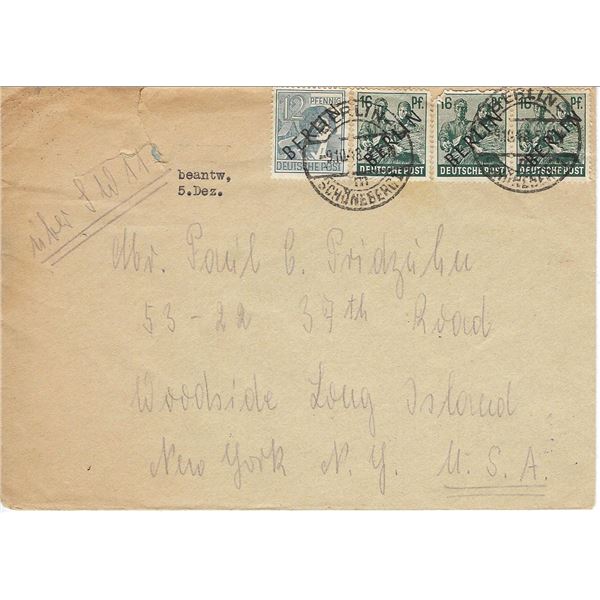 12 PFENNIG
BERLIN
DEUTSCHE POST
16 Pf.
BERLIN
DEUTSCHE POST
16
BERLIN
DEUTSCHE POST
16 Pf.
BERLIN
DEUTSCHE POST
BERLIN
SCHÖNEBERG
BERLIN
beantw,
5.Dez.
über
Mr. Paul C. Pridzuhn
53-22 37th Road
Woodside Long Island
New York N.Y. U.S.A.